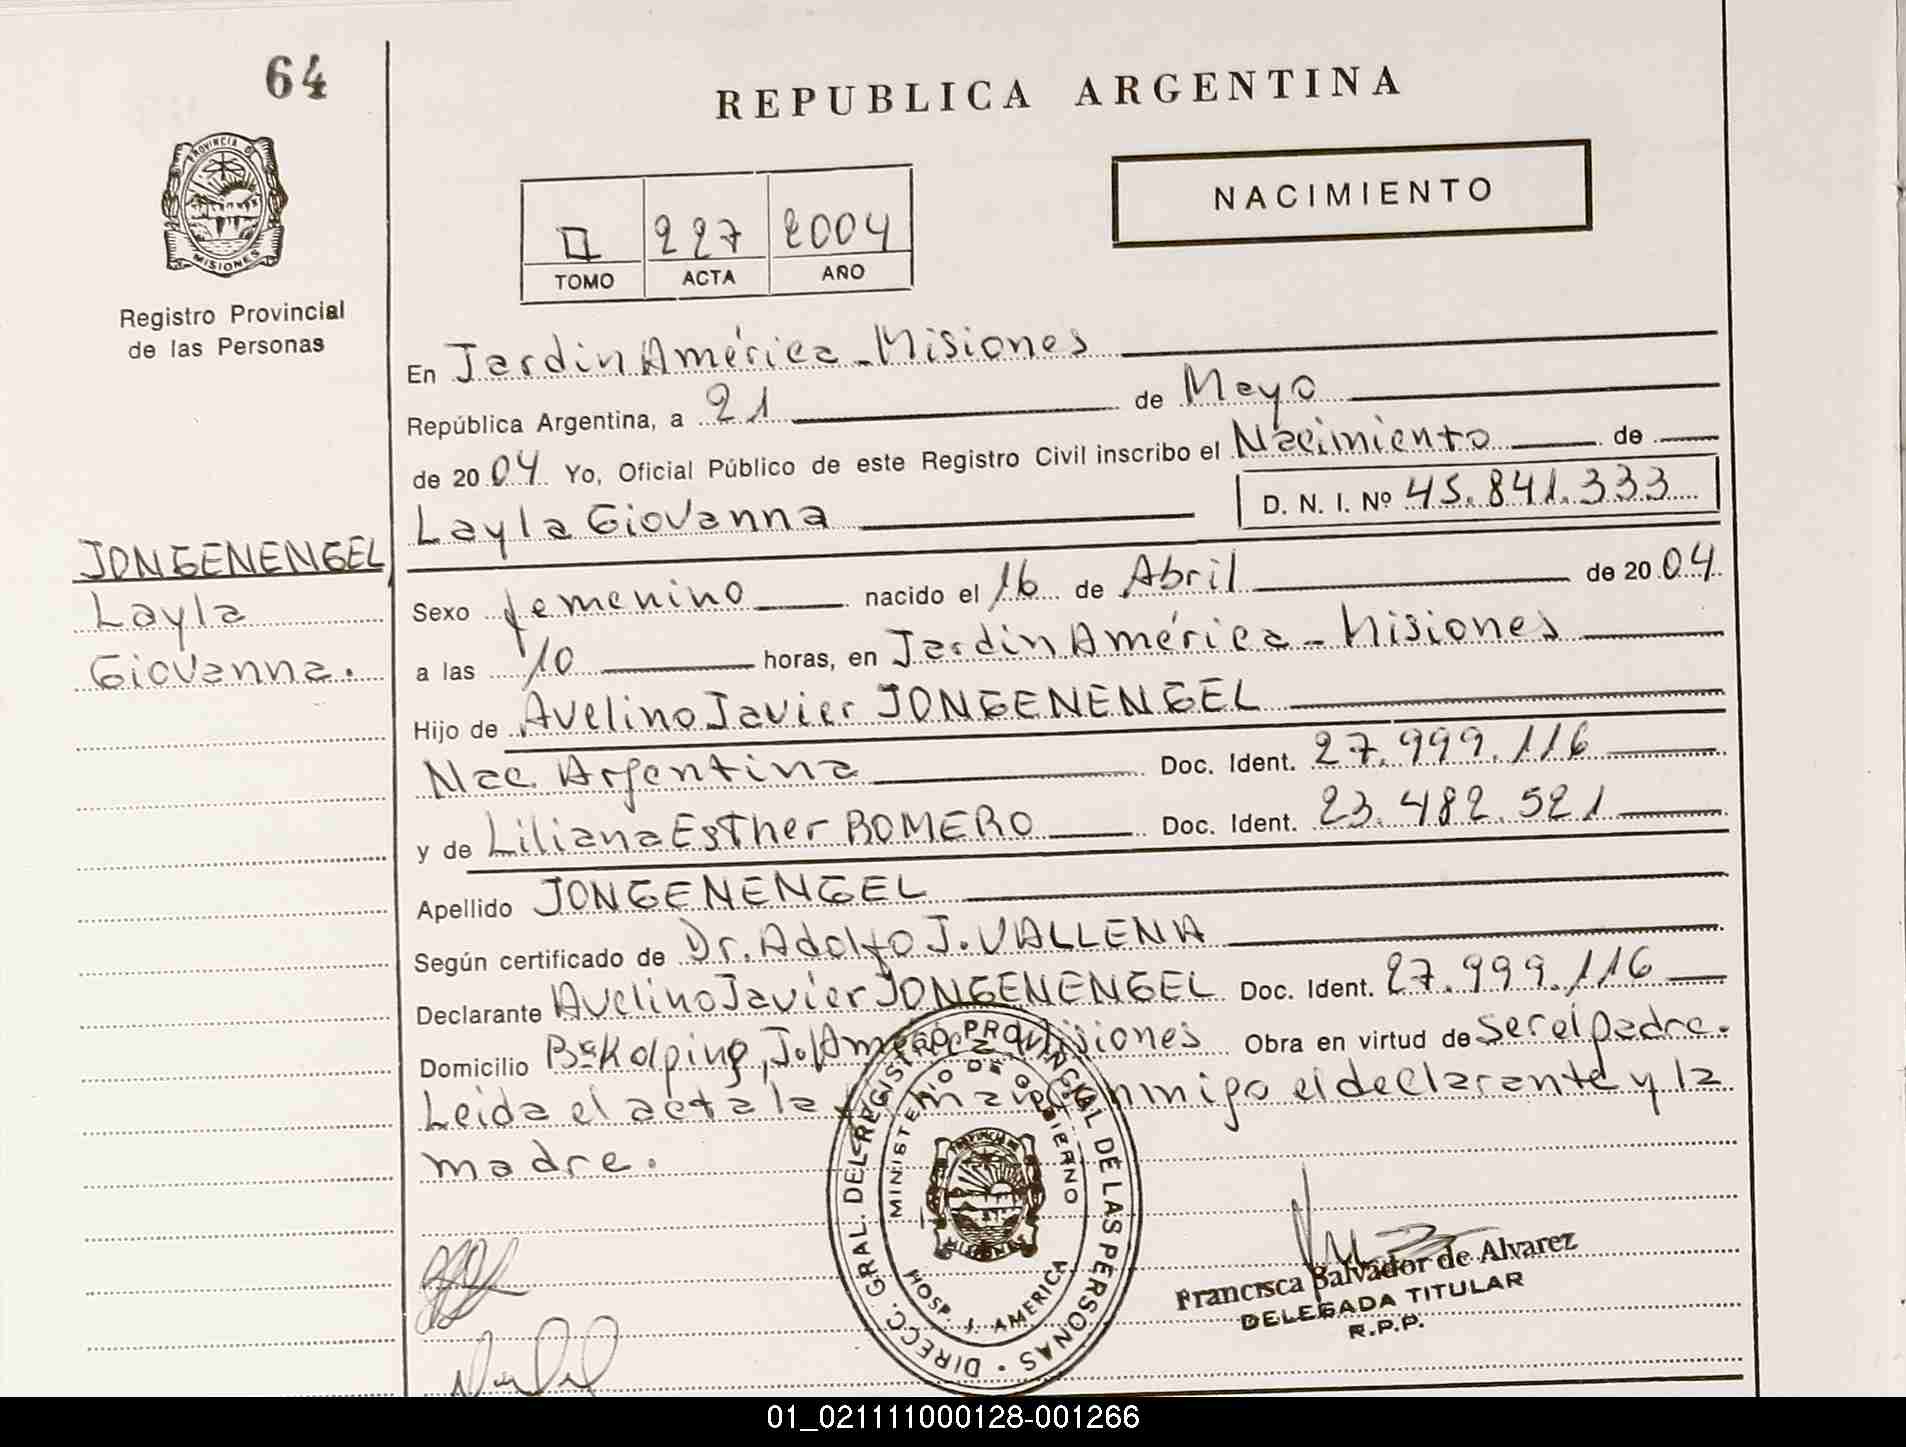 64
REPUBLICA ARGENTINA
PROVINCIA D
MISIONES
Registro Provincial
de las Personas
NACIMIENTO
227 2004
TOMO ACTA AÑO
En Jardin América - Misiones
República Argentina, a 21 de Mayo
de 2004 Yo, Oficial Público de este Registro Civil inscribo el Nacimiento de
D. N. I. Nº 45.841.333
Layla Giovanna
JONGENENGEL
Layla
Giovanna.
Sexo femenino nacido el 16 de Abril de 2004
a las 10 horas, en Jardin América - Misiones
Hijo de Avelino Javier JONGENENGEL
Nac. Argentina Doc. Ident. 27.999.116
y de Liliana Esther ROMERO Doc. Ident. 23.482.521
Apellido JONGENENGEL
Según certificado de Dr. Adolfo J. VALLENA
Declarante Avelino Javier JONGENENGEL Doc. Ident. 27.999.116
Domicilio Bº Kolping, J. América Misiones Obra en virtud de ser el padre.
Leida el acta la firma conmigo el declarante y la
madre.
DIRECC. GRAL. DEL REGISTRO PROVINCIAL DE LAS PERSONAS
MINISTERIO DE GOBIERNO
PROVINCIA DE
MISIONES
HOSP. J. AMERICA
Francisca Salvador de Alvarez
DELEGADA TITULAR
R.P.P.
01_021111000128-001266